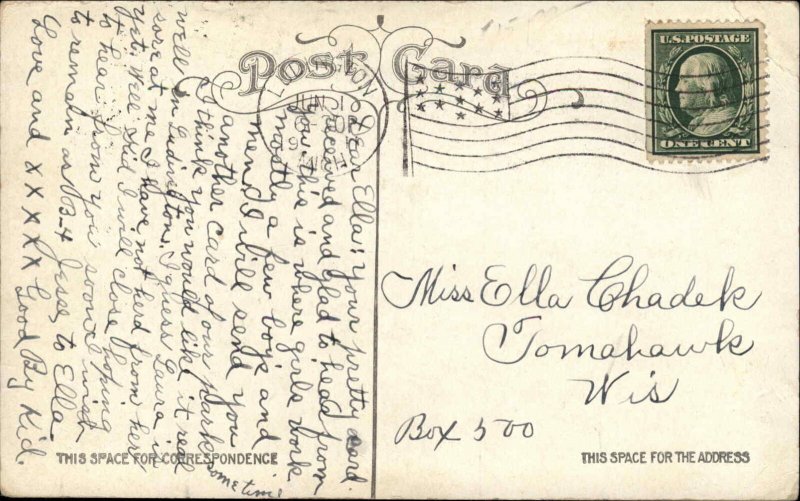 Post Card
JUN
MICH.
U.S. POSTAGE
ONE CENT
Dear Ella: Your pretty card
received and glad to head from
you this is where girls work
mostly a few boys and
men I will send you
another card of our park sometime
I think you would like it real
well in Ludington. I guess Laura is
sore at me I have not herd from her
yet. Well Kid I will close hoping
to hear from you soon I wish
to remain as B-4 Jesse to Ella
Love and XXXXX Good By Kid.
Miss Ella Chadek
Tomahawk
Wis
Box 500
THIS SPACE FOR CORRESPONDENCE
THIS SPACE FOR THE ADDRESS